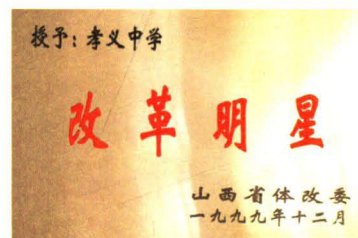 授予：孝义中学
改革明星
山西省体改委
一九九九年十二月